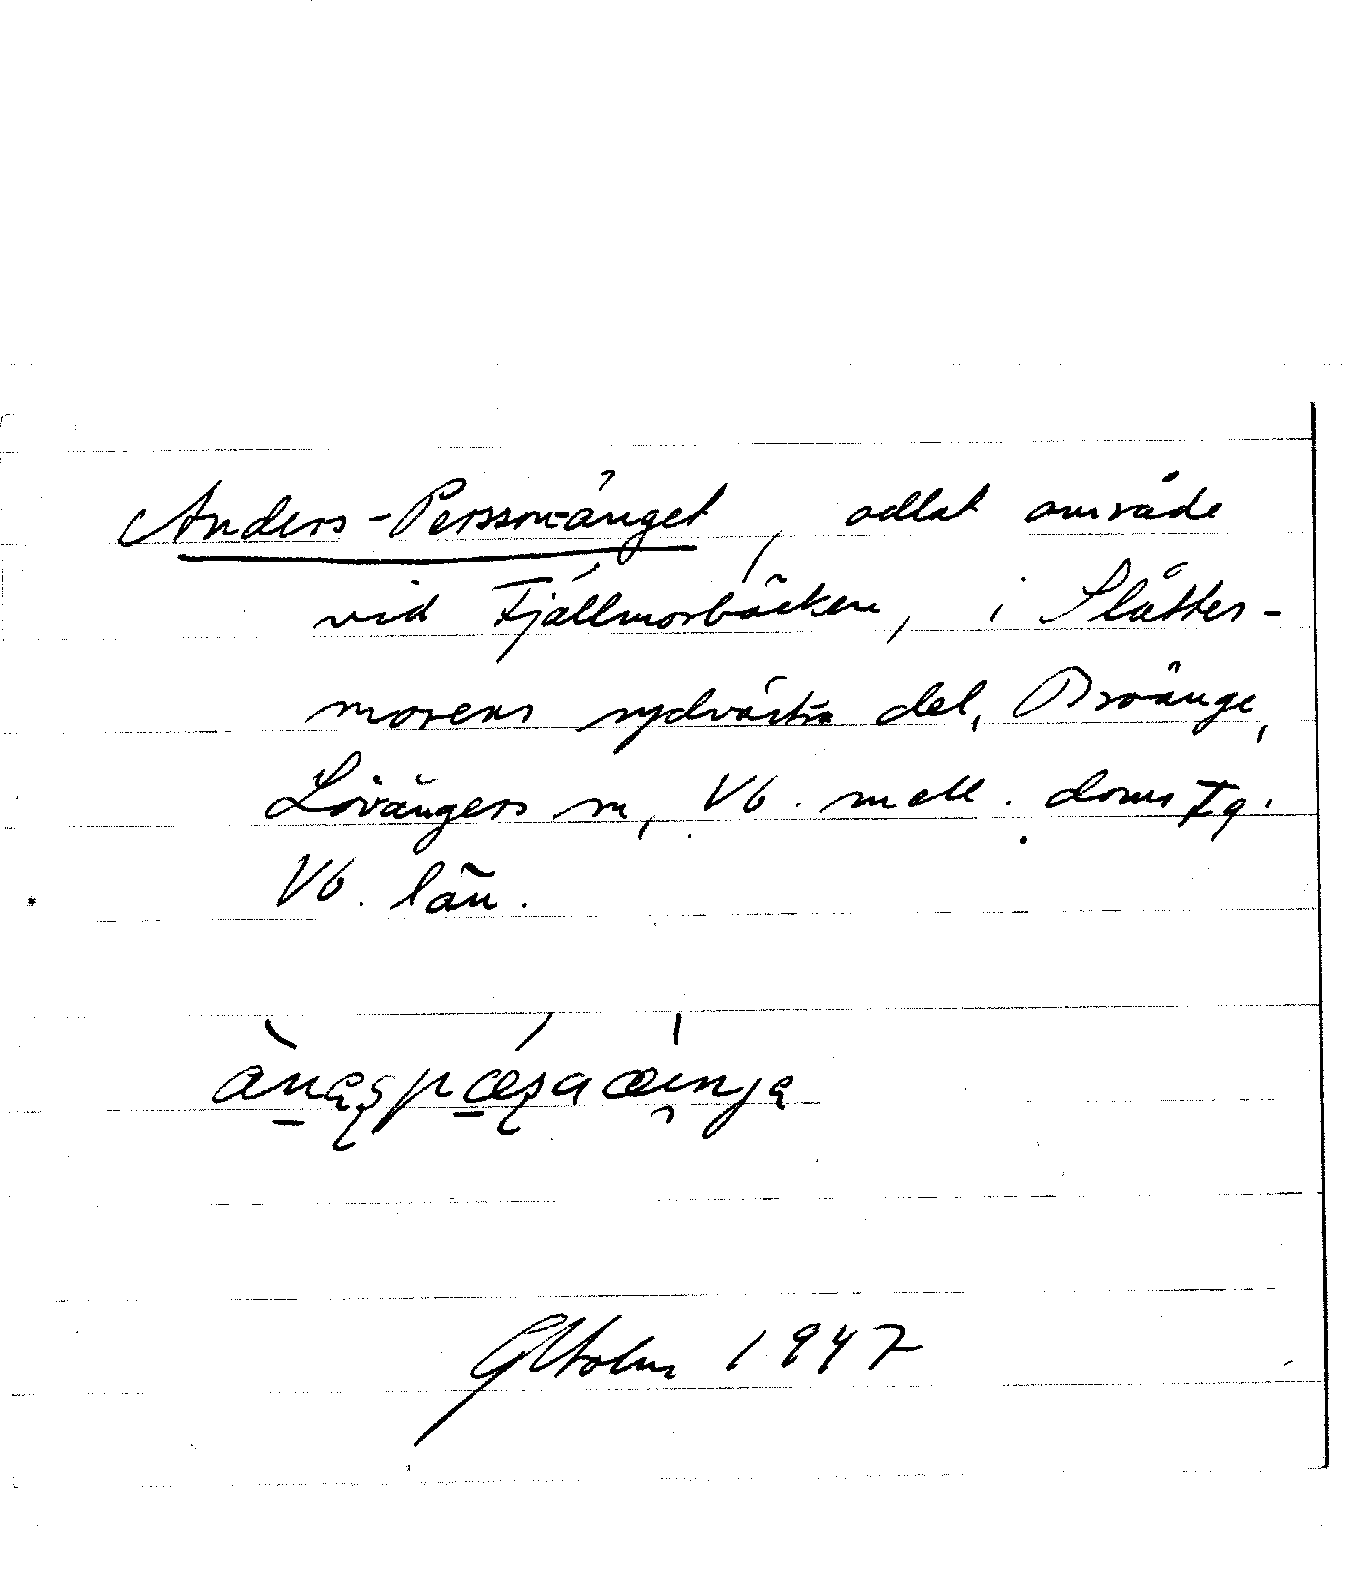 Anders-Persson-änget, odlat område
vid Fjällmorbäcken, i Slåtter-
morens sydvästra del, Broänge,
Lövångers sn, Vb. mell. doms Tg.
Vb. län.
1947